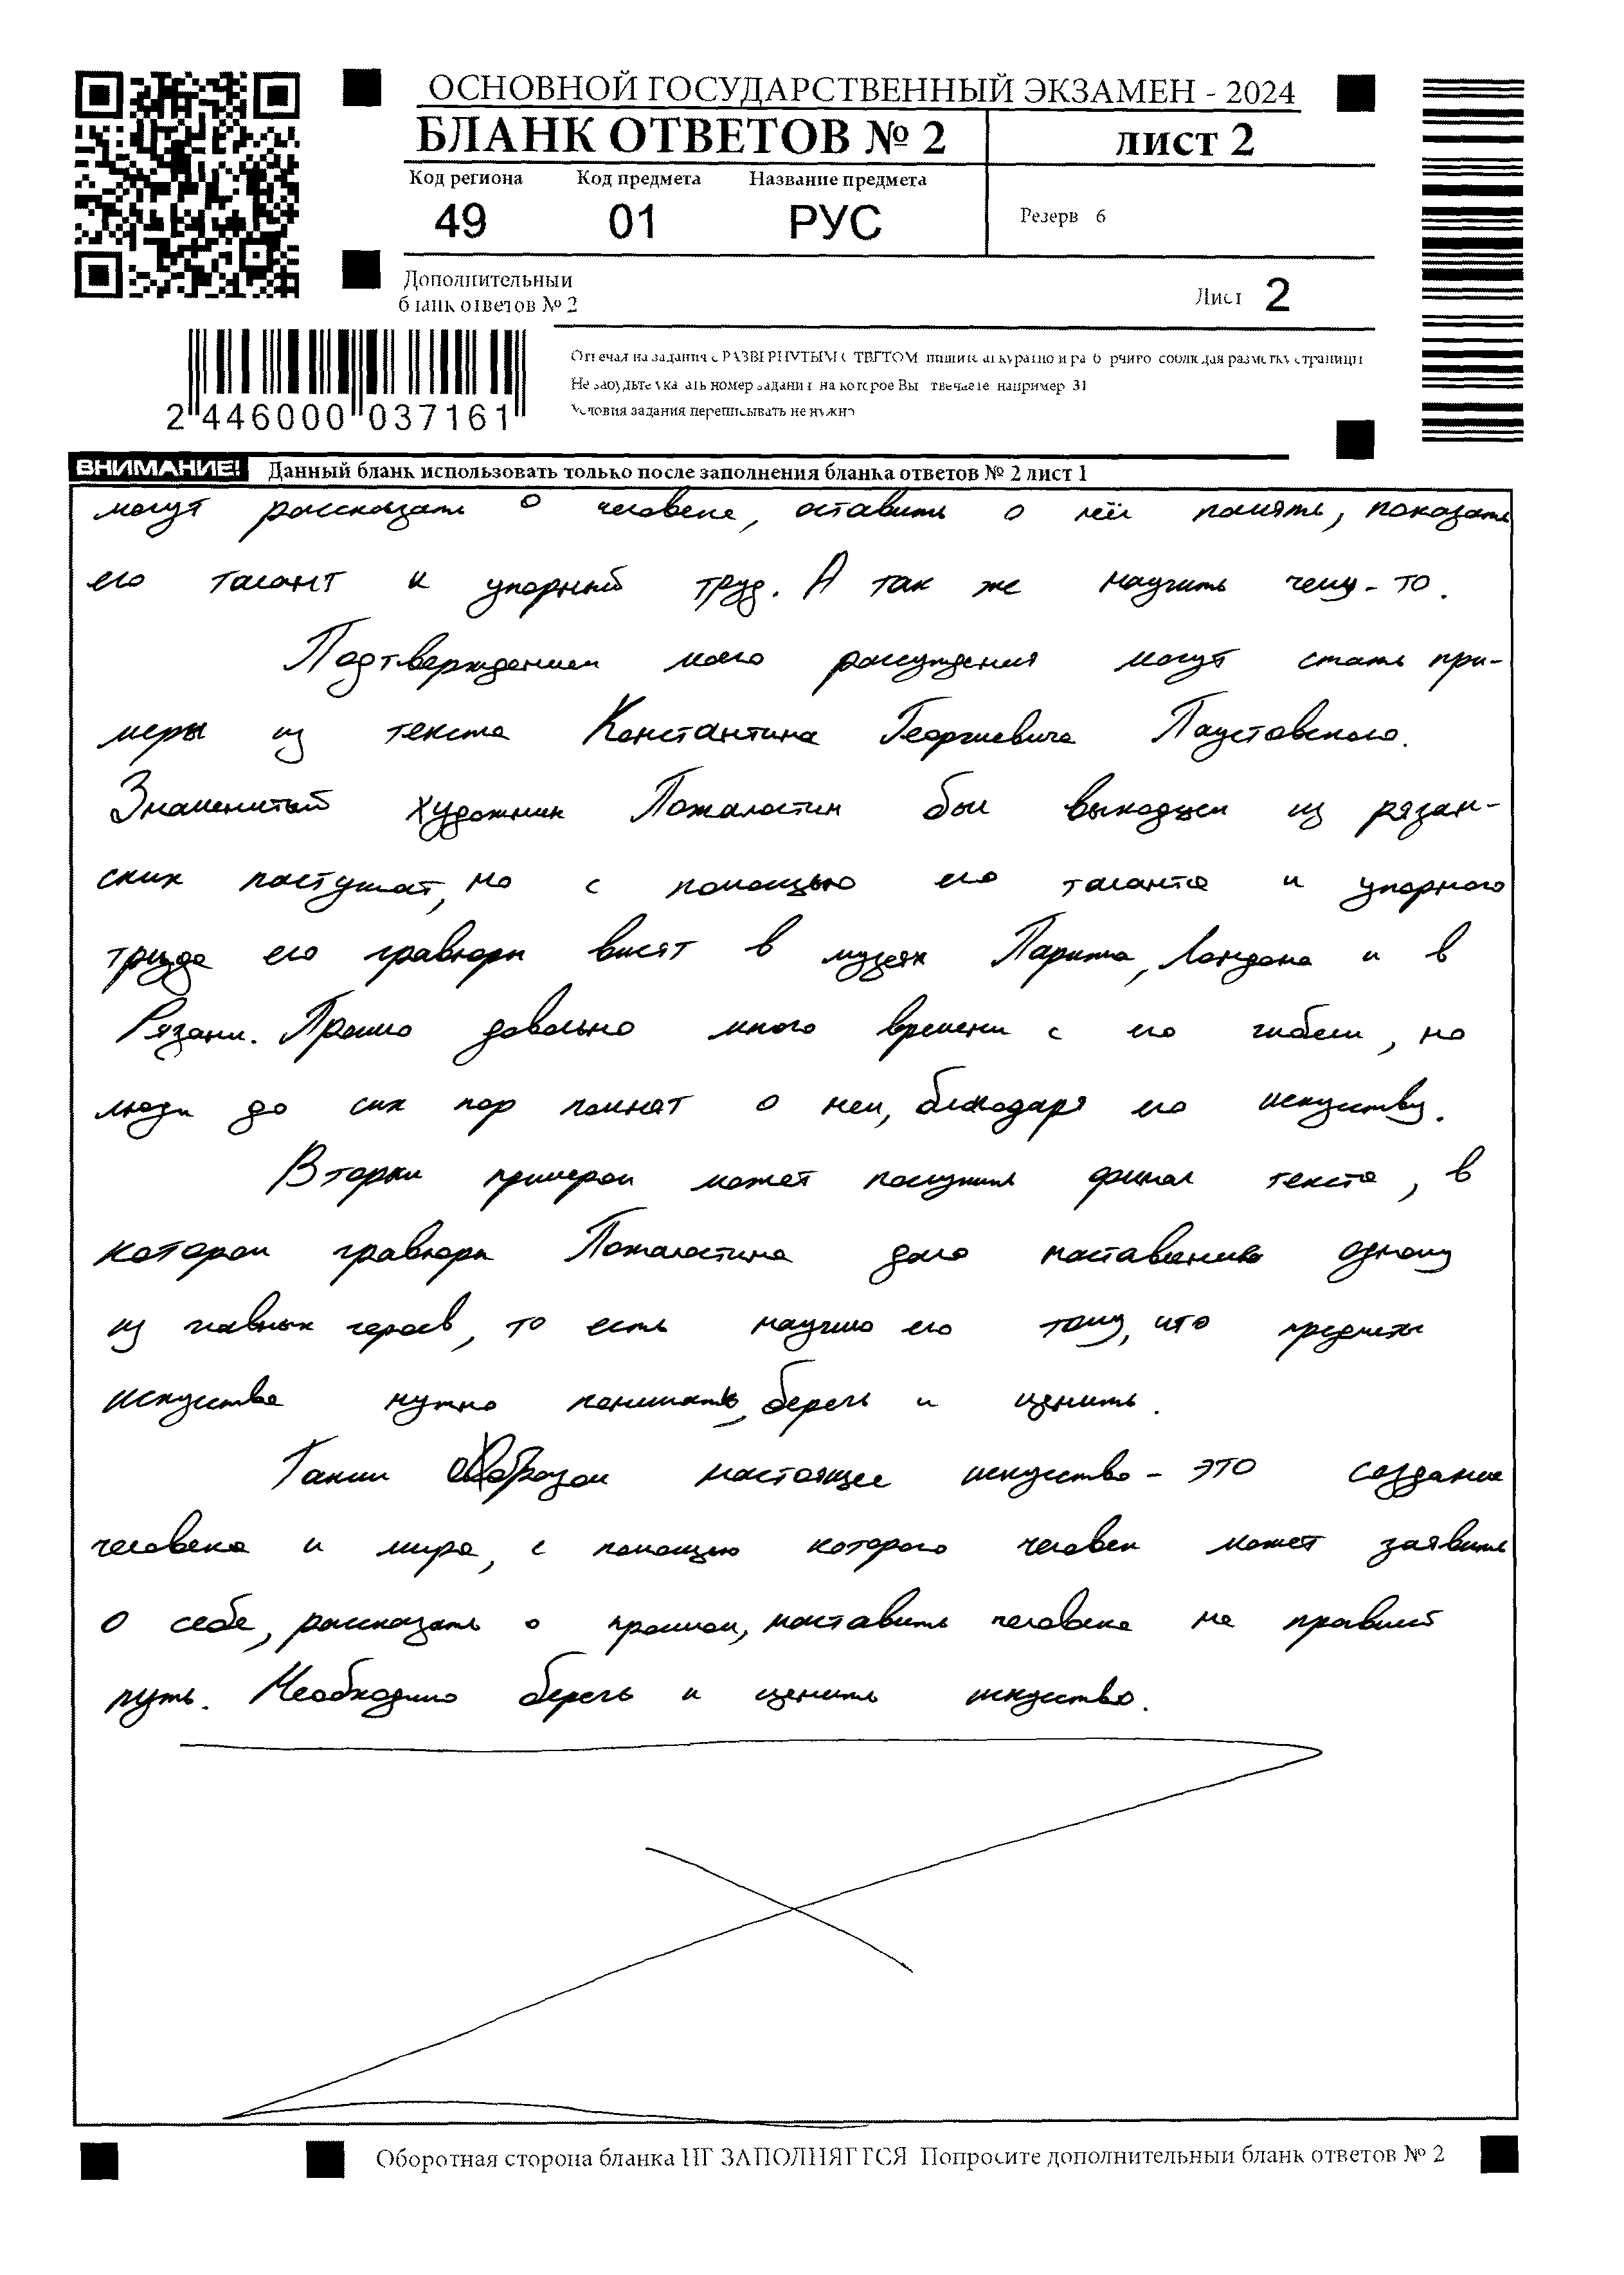 ОСНОВНОЙ ГОСУДАРСТВЕННЫЙ ЭКЗАМЕН - 2024
БЛАНК ОТВЕТОВ № 2
лист 2
Код региона Код предмета Название предмета
49 01 РУС
Резерв 6
Дополнительный
бланк ответов № 2
Лист 2
2 446000 037161
Условия задания переписывать не нужно
ВНИМАНИЕ! Данный бланк использовать только после заполнения бланка ответов № 2 лист 1
могут рассказать о человеке, оставить о нём память, показать
его талант и упорный труд. А так же научить чему-то.
Подтверждением моего рассуждения могут стать при-
меры из текста Константина Георгиевича Паустовского.
Знаменитый художник Пожалостин был выходцем из рязан-
ских пастушат, но с помощью его таланта и упорного
труда его гравюры висят в музеях Парижа, Лондона и в
Рязани. Прошло довольно много времени с его гибели, но
люди до сих пор помнят о нем, благодаря его искусству.
Вторым примером может послужить финал текста, в
котором гравюры Пожалостина дало наставление одному
из главных героев, то есть научило его тому, что предметы
искусства нужно понимать, беречь и ценить.
Таким образом настоящее искусство - это создание
человека и мира, с помощью которого человек может заявить
о себе, рассказать о прошлом, наставить человека на правый
путь. Необходимо беречь и ценить искусство.
Оборотная сторона бланка НЕ ЗАПОЛНЯЕТСЯ Попросите дополнительный бланк ответов № 2